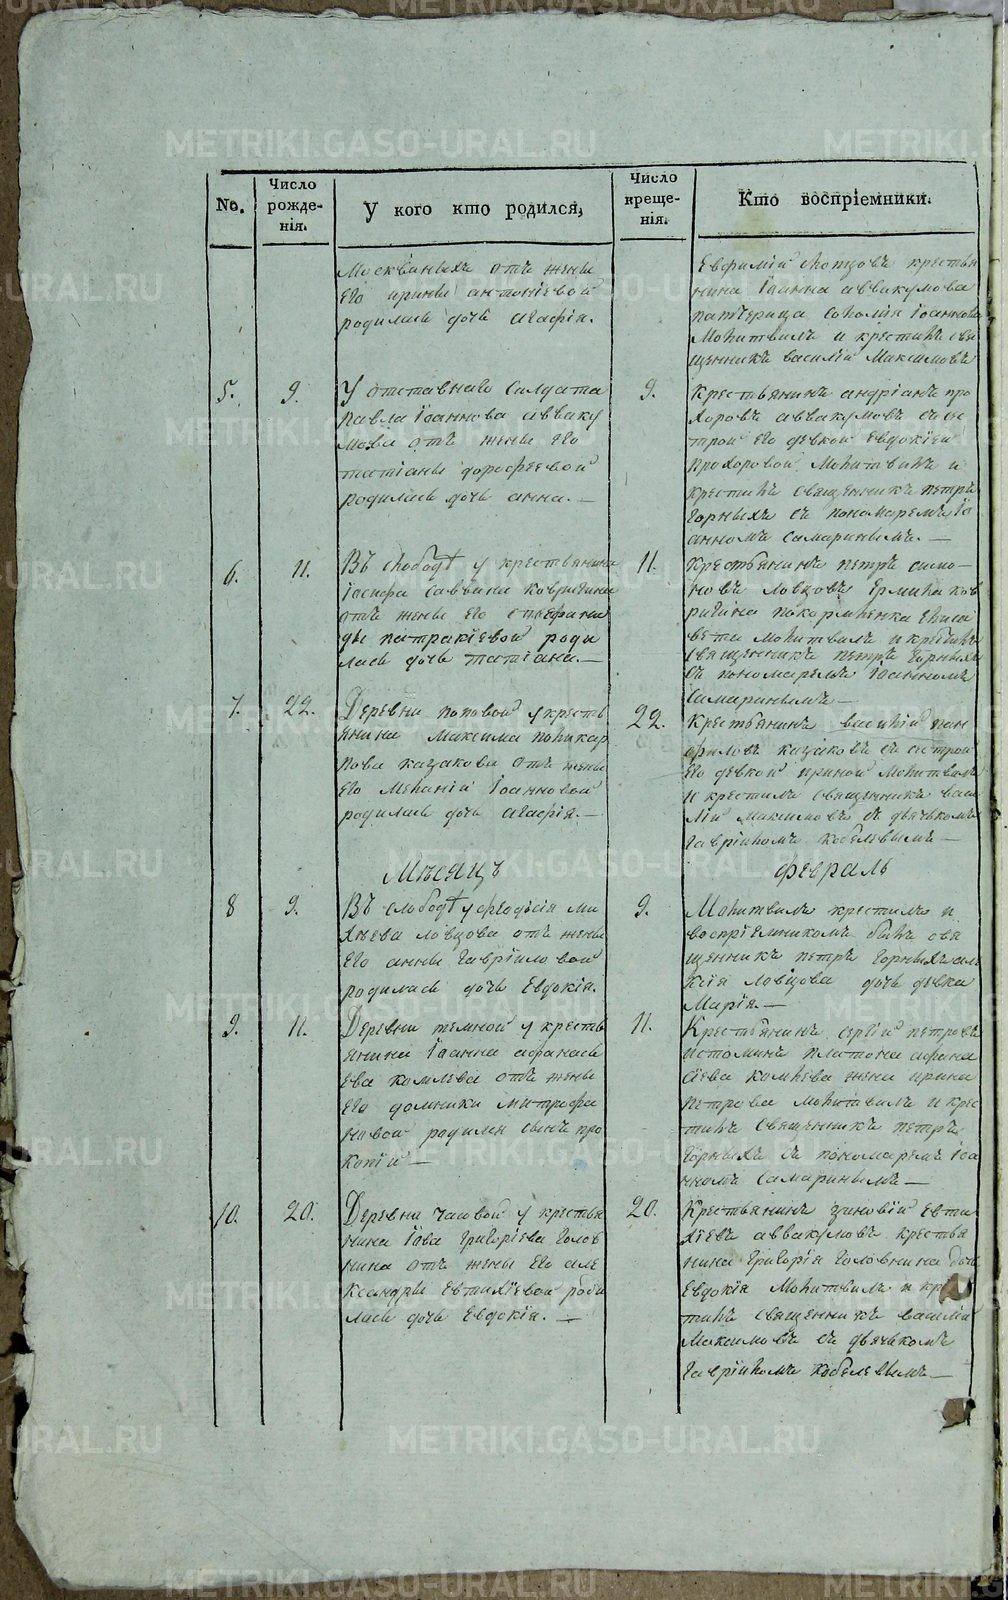 No.
Число
рожде-
нія.
У кого кто родился,
Число
креще-
нія.
Кто воспріемники.
Москвиныхъ отъ жены
его ирины антоніевой
родилась дочь агафія.
Евфимій крестья
нина іоанна аввакумова
іоаннова
Молитвилъ и крестилъ свя
щенникъ василій Максимовъ
5.
9.
У отставнаго солдата
павла іоаннова авваку
мова отъ жены его
татіаны дорофеевой
родилась дочь анна.—
9.
Крестьянинъ андріанъ про
хоровъ аввакумовъ съ сес
трой его девкой Евдокіей
прохоровой Молитвилъ и
крестилъ священникъ петръ
Горныхъ съ пономаремъ іо
анномъ самаринымъ.—
6.
11.
Въ слободѣ у крестьянина
іосифа саввина ковригина
отъ жены его стефани
ды патракіевой роди
лась дочь татіана.—
11.
Крестьянинъ петръ симо-
новъ ловцовъ Ермила ков
ригина Елиса
вета молитвилъ и крестилъ
священникъ петръ Горныхъ
съ пономаремъ іоанномъ
самаринымъ—
7.
22.
Деревни поповой у кресть
янина Максима поликар
пова казакова отъ жены
его меланіи іоанновой
родилась дочь агафія.—
22.
Крестьянинъ василій пан
филовъ казаковъ съ сестрой
его девкой ириной молитвилъ
и крестилъ священникъ васи
лій максимовъ съ дьячькомъ
гавріиломъ кобелевымъ—
Мѣсяцъ
февраль
8
9.
Въ слободѣ у феодосія ми
хеева ловцова отъ жены
его анны гавріиловой
родилась дочь Евдокія.
9.
Молитвилъ крестилъ и
воспріемникомъ былъ свя
щенникъ петръ Горныхъ але
ксія ловцова дочь девка
Марія.—
9.
11.
Деревни темной у кресть
янина іоанна афанась
ева комлева отъ жены
его домники митрофа
новой родился сынъ про
копій—
11.
Крестьянинъ сергій петровъ
истоминъ платона афана
сіева комлева жена ирина
петрова молитвилъ и крес
тилъ священникъ петръ
Горныхъ съ пономаремъ іоа
нномъ самаринымъ—
10.
20.
Деревни чаовой у крестья
нина іова григоріева голов
нина отъ жены его але
ксандры Евтихіевой роди
лась дочь Евдокія.—
20.
Крестьянинъ зиновій Евти
хіевъ аввакумовъ крестья
нина григорія головнина дочь
Евдокія Молитвилъ и крес
тилъ священникъ василій
Максимовъ съ дьячькомъ
гавріиломъ кобелевымъ—
METRIKI.GASO-URAL.RU